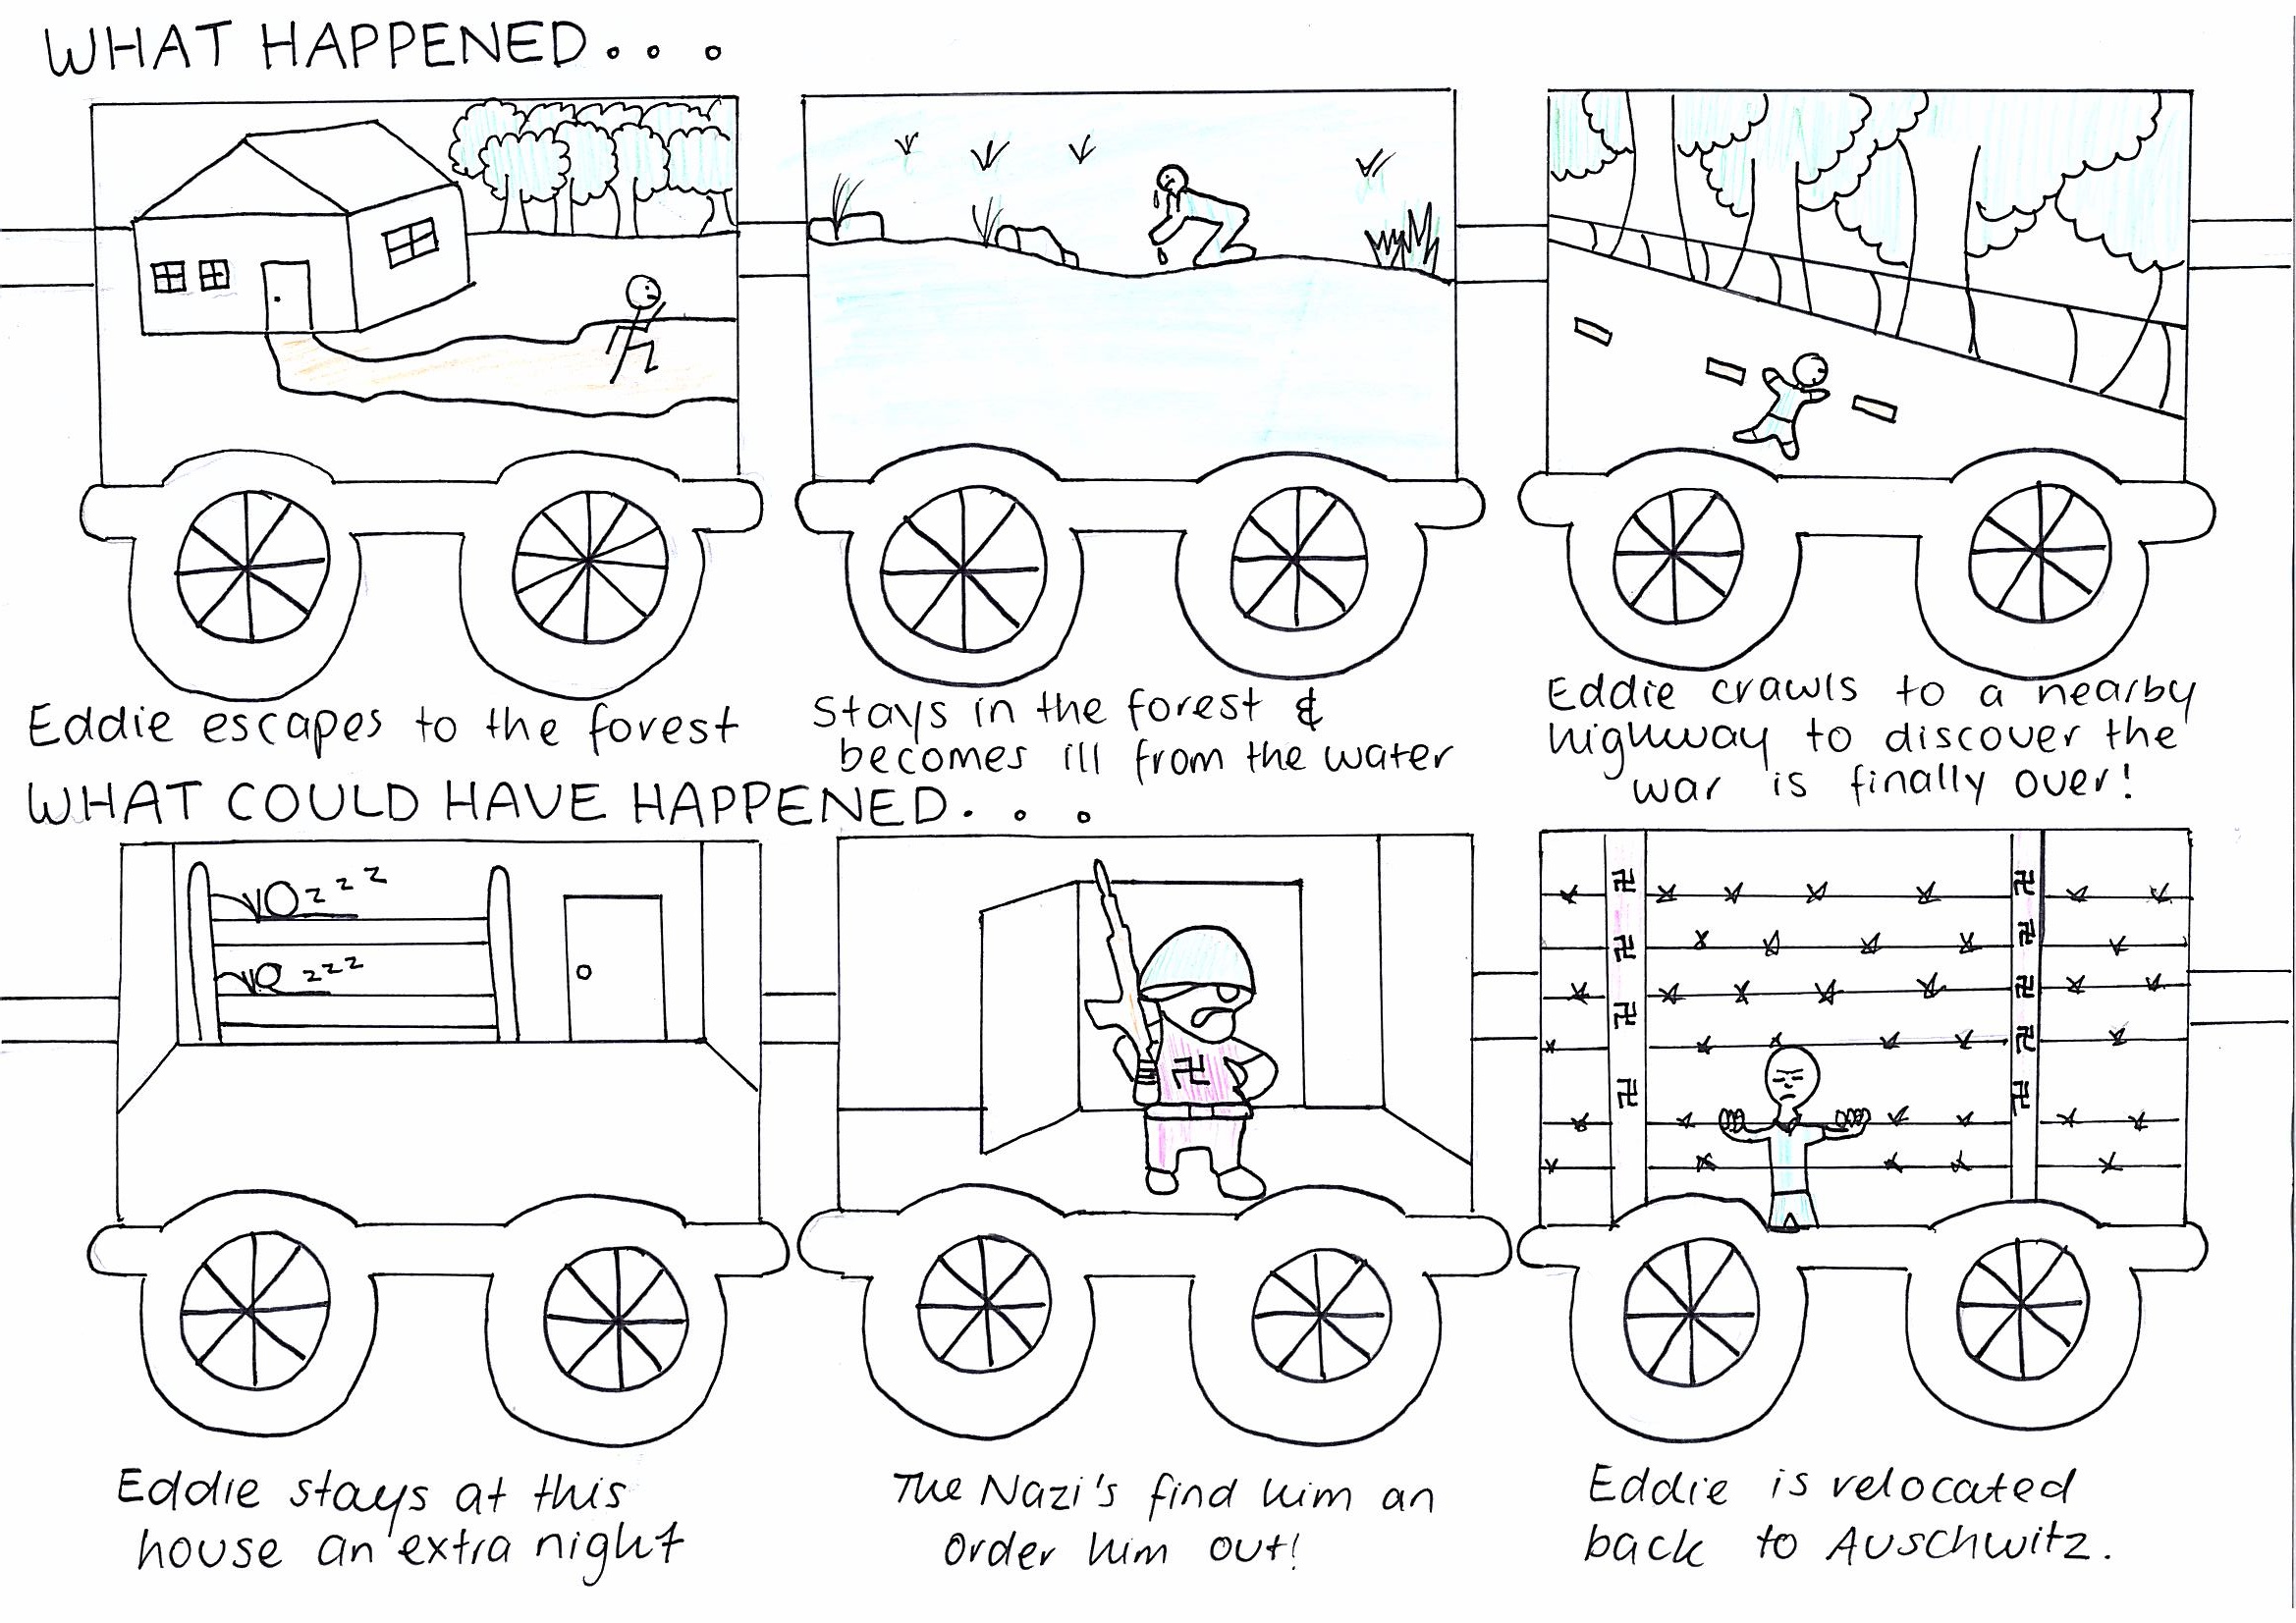 WHAT HAPPENED...
Eddie escapes to the forest
Stays in the forest &
becomes ill from the water
Eddie crawls to a nearby
highway to discover the
war is finally over!
WHAT COULD HAVE HAPPENED...
zzz
zzz
Eddie stays at this
house an extra night
The Nazi's find him an
order him out!
Eddie is relocated
back to Auschwitz.